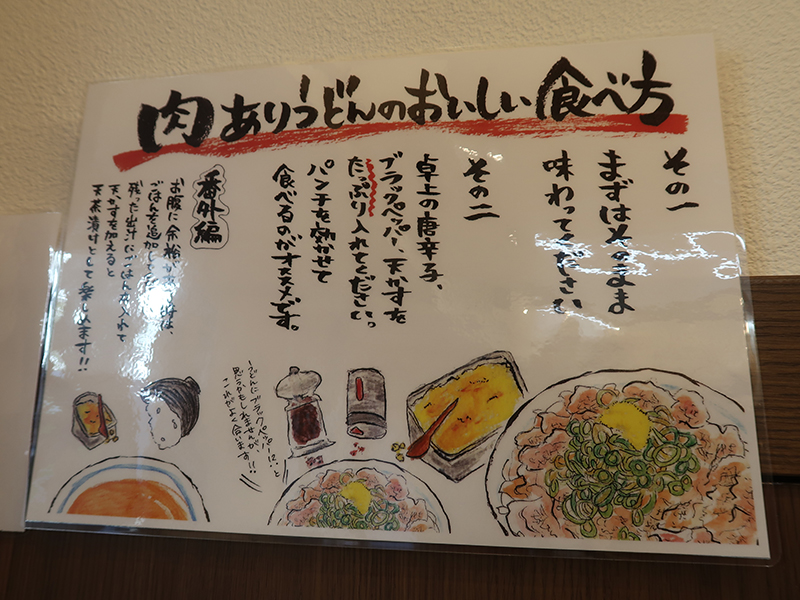 肉ありうどんのおいしい食べ方
その一
まずはそのまま
味わってください
その二
卓上の唐辛子、
ブラックペッパー、天かすを
たっぷり入れてください。
パンチを効かせて
食べるのがオススメです。
番外編
お腹に余裕が
ごはんを追加して
残った出汁にごはんが入れて
天かすを加えると
天茶漬けとして楽しめます!!
うどんにブラックペッパー!?と
思うかもしれませんが
これがよく合います!!